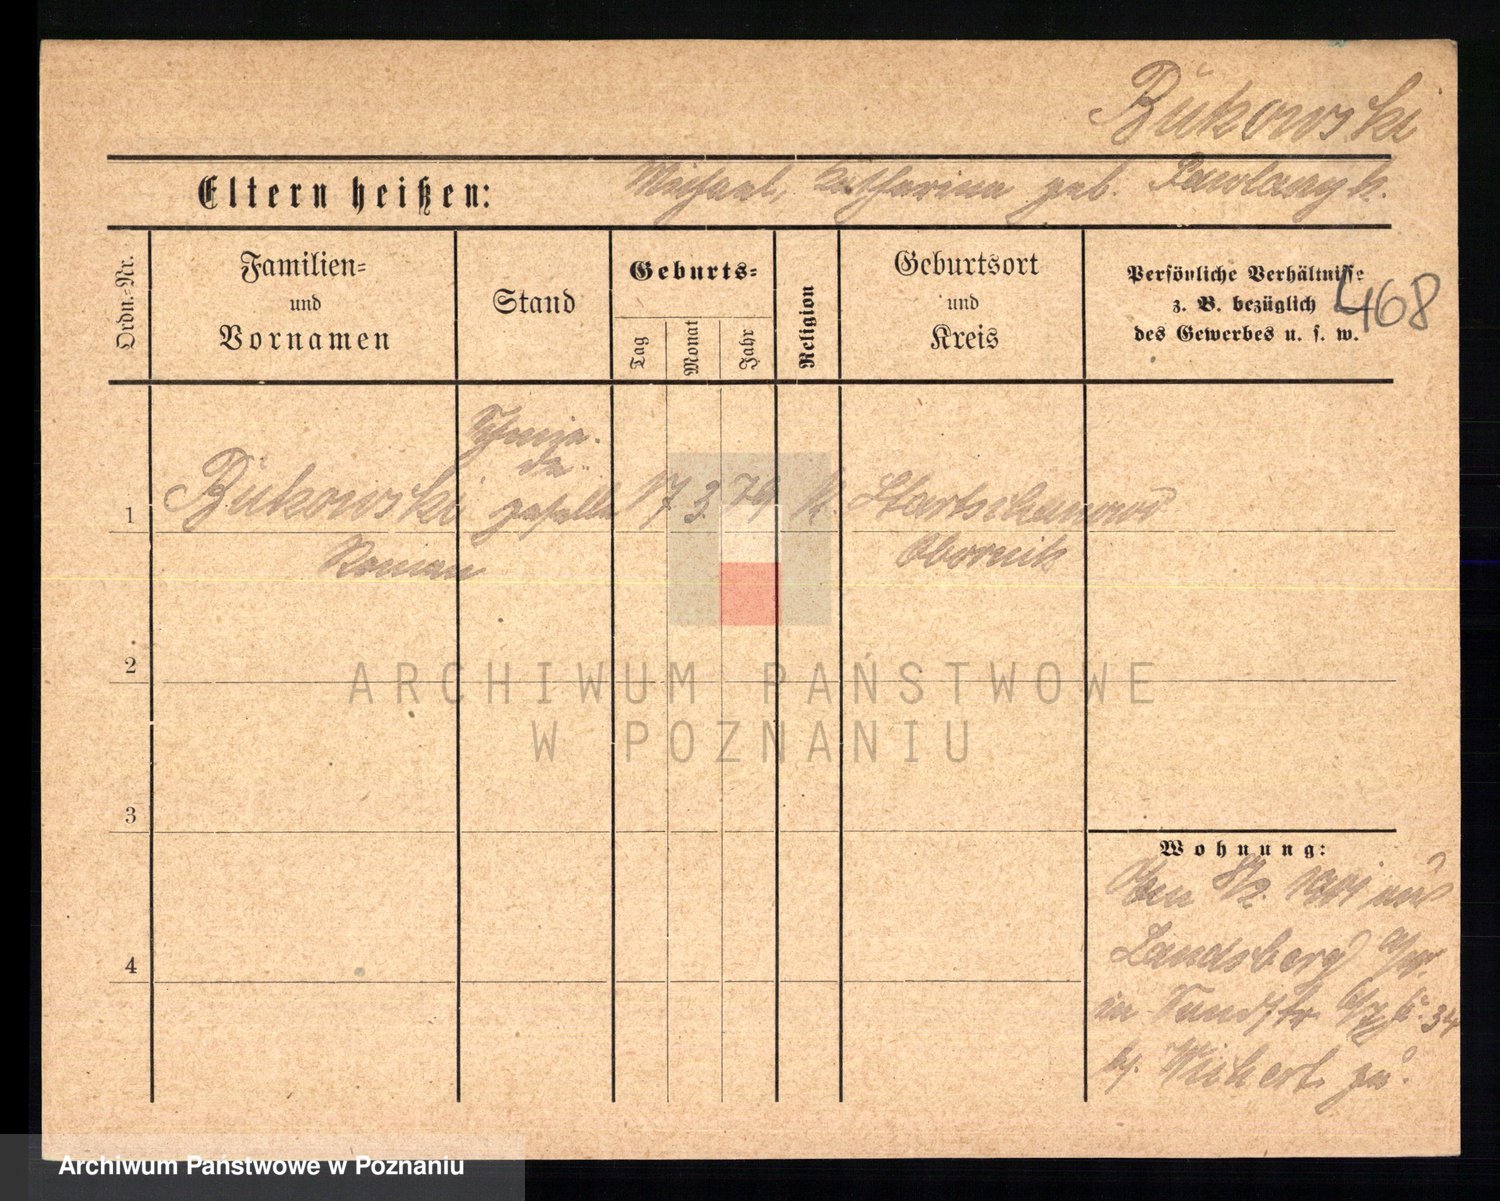 Bukowski
Eltern heißen: Michael, Katharina geb.
Ordn.-Nr.
Familien-
und
Vornamen
Stand
Geburts-
Tag
Monat
Jahr
Religion
Geburtsort
und
Kreis
Persönliche Verhältnisse
z. B. bezüglich
des Gewerbes u. s. w.
468
Schmie-
de-
1 Bukowski geselle 17 3. 79 K.
Roman Obornik
2
ARCHIWUM PAŃSTWOWE
W POZNANIU
3
Wohnung:
aus
4 Landsberg a/W.
in 34
b/. zu.
Archiwum Państwowe w Poznaniu